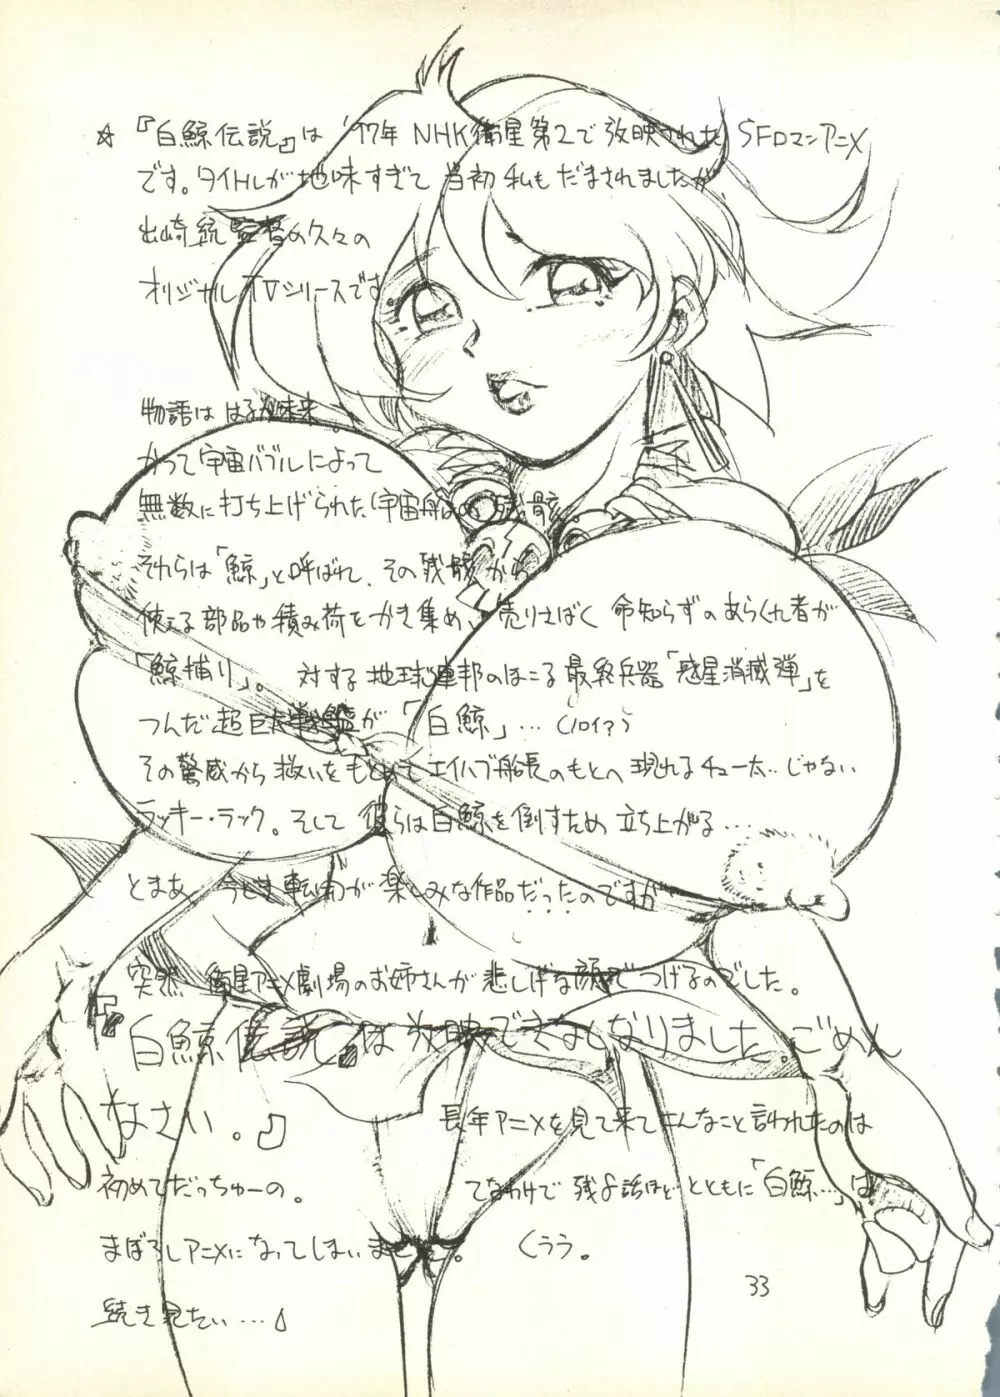 ☆『白鯨伝説』は '97年 NHK衛星第2で放映された SFロマンアニメ
です。タイトルが地味すぎて 当初 私も だまされましたが、
出崎統監督の久々の
オリジナルTVシリーズです。
物語は はるか未来。
かつて宇宙バブルによって
無数に打ち上げられた宇宙船の残骸
それらは「鯨」と呼ばれ、その残骸から
使える部品や積み荷をかき集め、売りさばく 命知らずのあらくれ者が
「鯨捕り」。 対する 地球連邦のほこる 最終兵器「惑星消滅弾」を
つんだ超巨大戦艦が「白鯨」…
その驚威から 救いをもとめて エイハブ船長のもとへ 現れる チュー太‥じゃない
ラッキー・ラック。そして 彼らは白鯨を倒すため 立ち上がる…
とまあ 今どき 転がが 楽しみな作品だったのですが
突然 衛星アニメ劇場のお姉さんが 悲しげな顔でつげるのでした。
『『白鯨伝説』は 放映できなくなりました。ごめん
なさい。』 長年アニメを見て来てこんなこと言われたのは
初めてだっちゅーの。 てなわけで 残8話ほどとともに「白鯨…」は
まぼろしアニメになってしまいました。 くうう。
続き見たい…
33